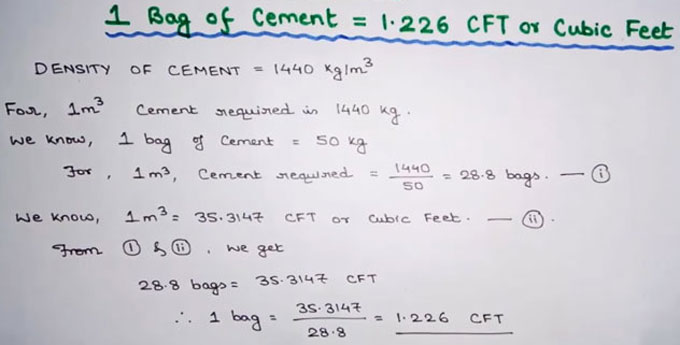 1 Bag of Cement = 1.226 CFT or Cubic Feet
DENSITY OF CEMENT = 1440 kg/m³
For, 1m³ Cement required is 1440 kg.
We know, 1 bag of Cement = 50 kg
For, 1m³, Cement required = 1440/50 = 28.8 bags. — (i)
We know, 1m³ = 35.3147 CFT or Cubic Feet. — (ii).
From (i) & (ii), we get
28.8 bags = 35.3147 CFT
∴ 1 bag = 35.3147/28.8 = 1.226 CFT